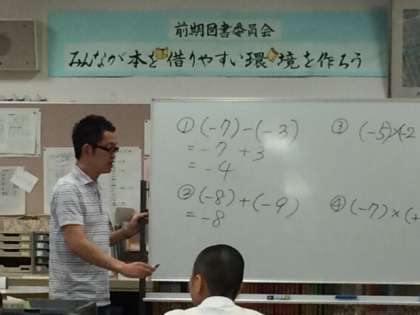 前期図書委員会
みんなが本を借りやすい環境を作ろう
① (-7)-(-3)
= -7 +3
= -4
② (-8)+(-9)
= -8
③ (-5)×(-2
④ (-7)×(+